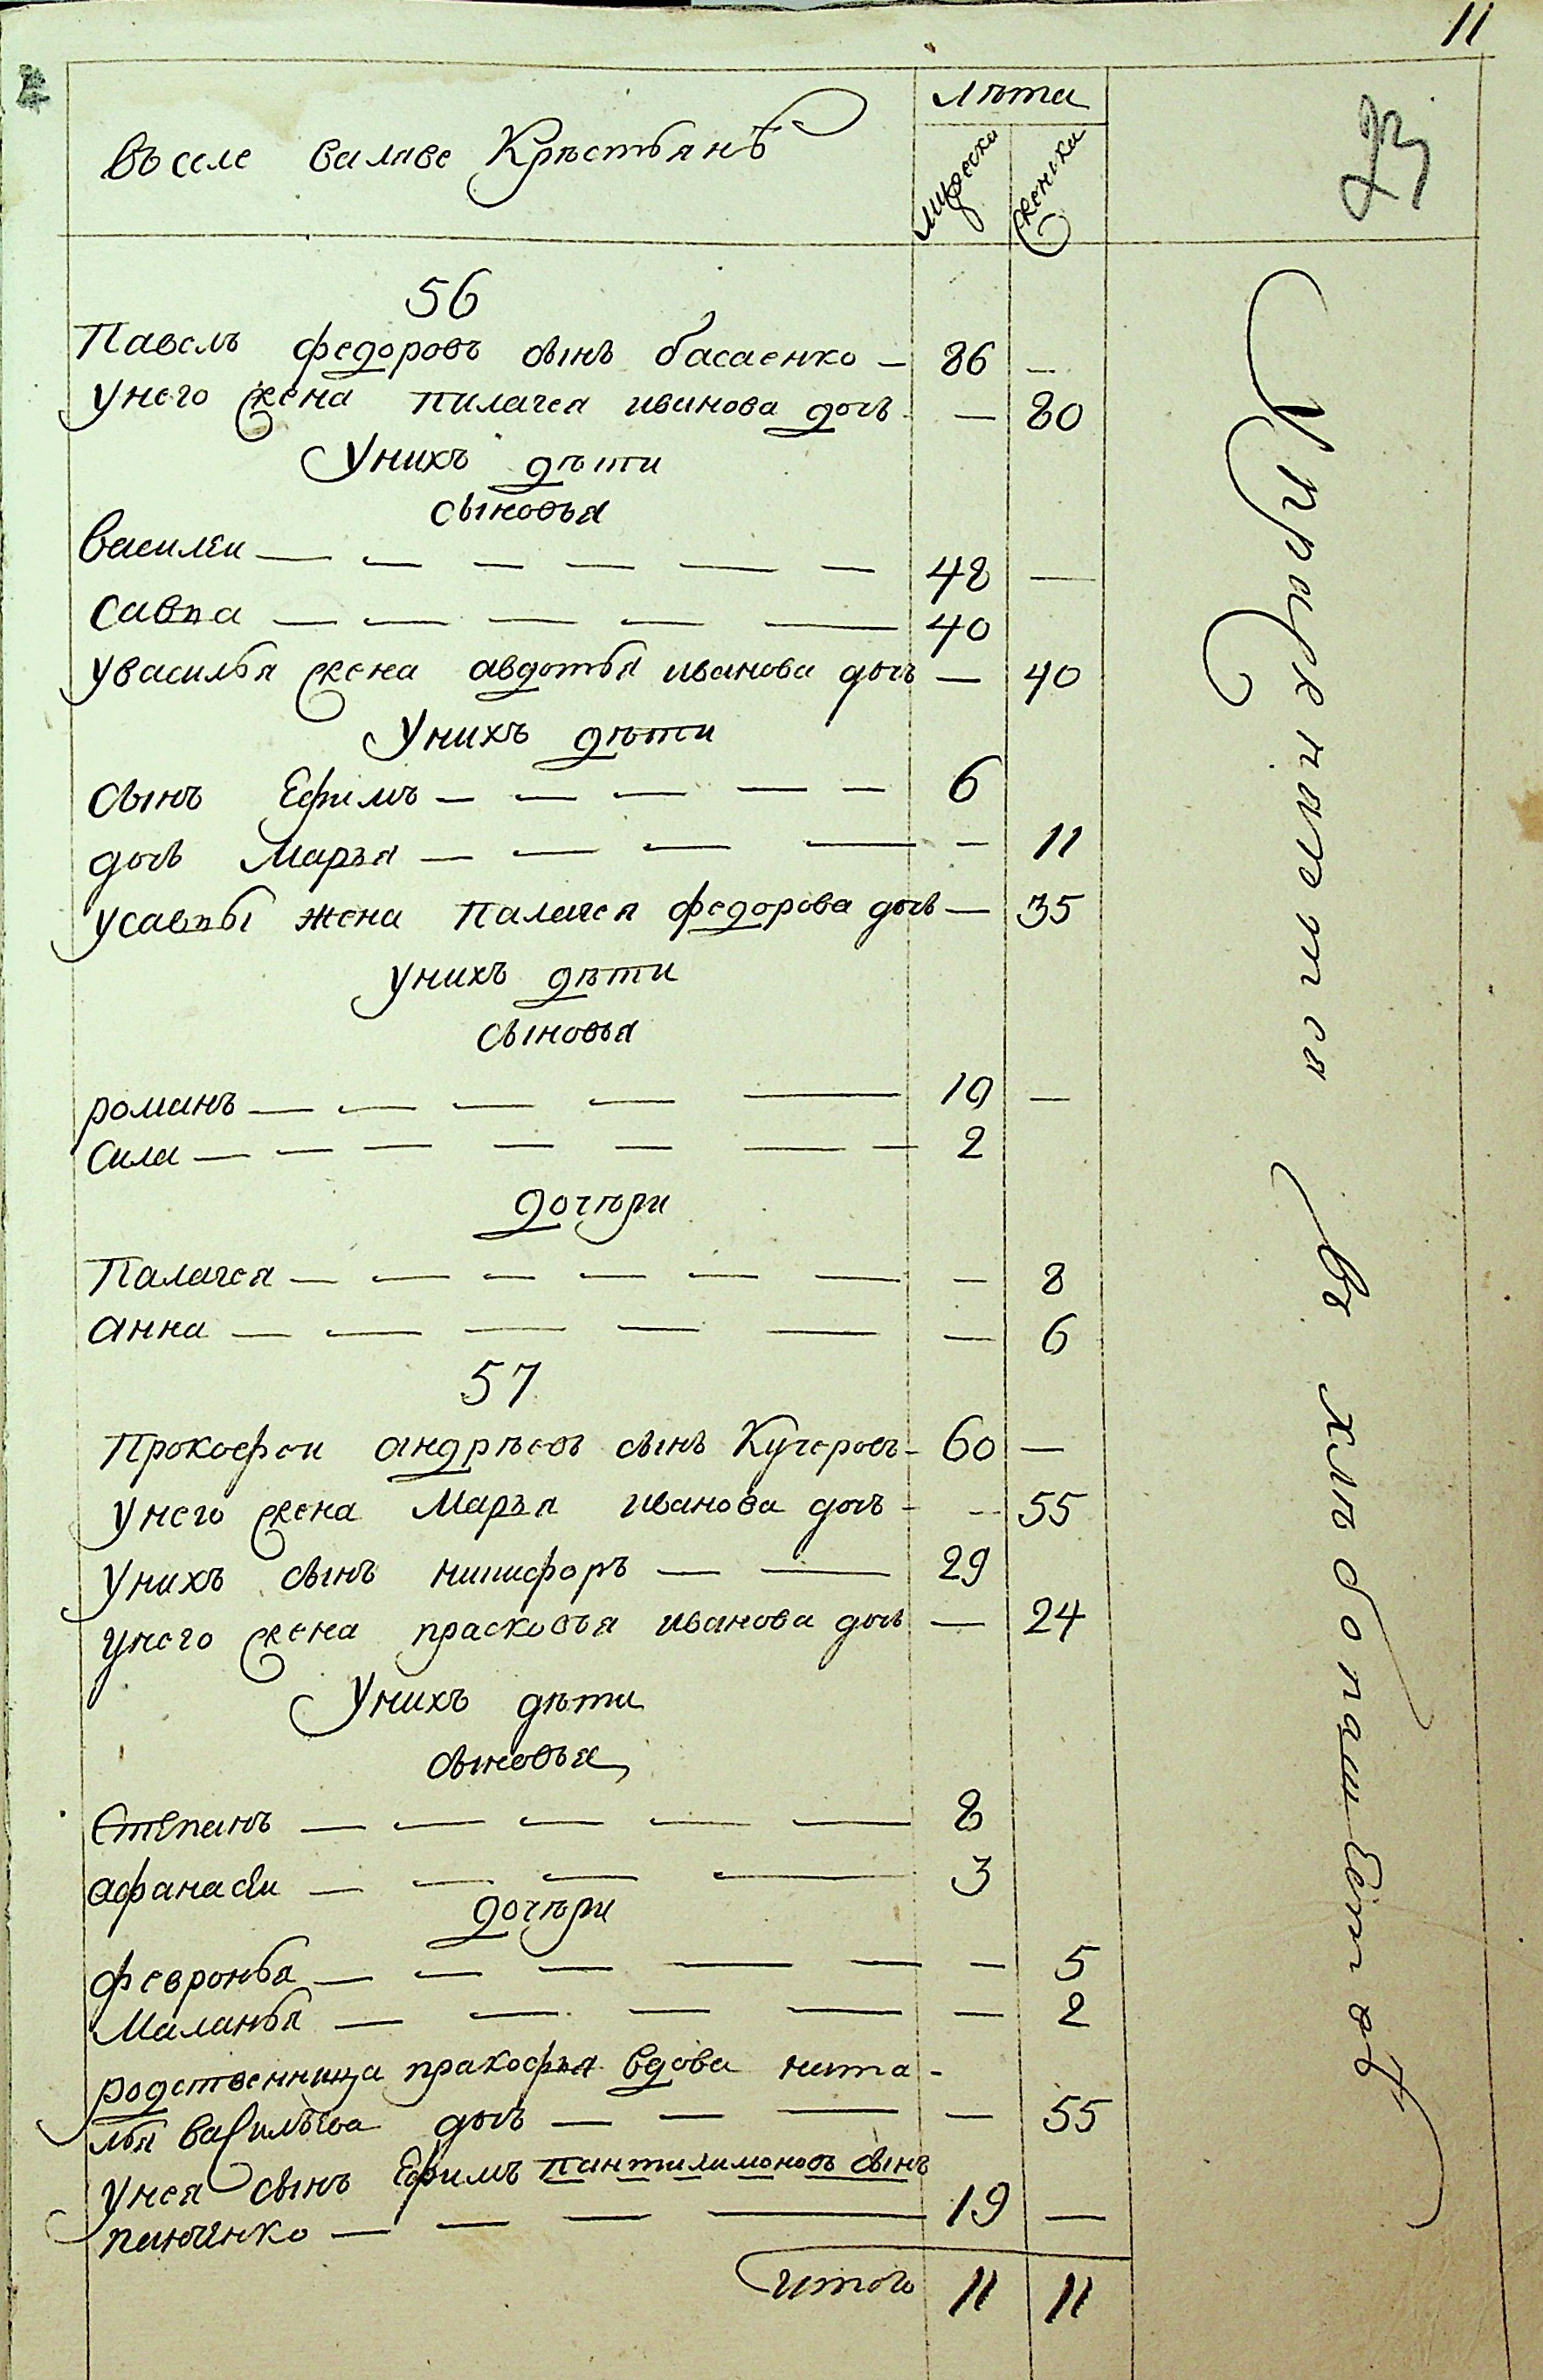 11
Лѣта
въ селе валаве Крѣстьянъ
мужеска
женска
23
56
Павелъ федоровъ сынъ басаенко — 86 —
Унего жена пилагея иванова дочь — 80
Унихъ дѣти
сыновья
василеи — — — — — — 48 —
савпа — — — — — 40
Увасилья жена авдотья иванова дочь — 40
Унихъ дѣти
сынъ Ефимъ — — — — — 6
дочь Марья — — — — — 11
усавпы жена Палагея федорова дочь — 35
унихъ дѣти
сыновья
романъ — — — — — 10 —
сила — — — — — — — 2
дочѣри
Палагея — — — — — — — 8
анна — — — — — — 6
57
Прокофеи андрѣевъ сынъ Кучеровъ — 60 —
Унего жена Марья иванова дочь — — 55
Унихъ сынъ никифоръ — — 29
унего жена прасковья иванова дочь — 24
Унихъ дѣти
сыновья
Степанъ — — — — — 8
афанасеи — — — — 3
дочѣри
февронья — — — — — — 5
Маланья — — — — — 2
родственница пракофья вдова ната-
лья васильева дочь — — — — 55
Унея сынъ Ефимъ пантилимоновъ сынъ
панченко — — — — 19 —
итого 11 11
Упражняются въ хлѣбопашестве